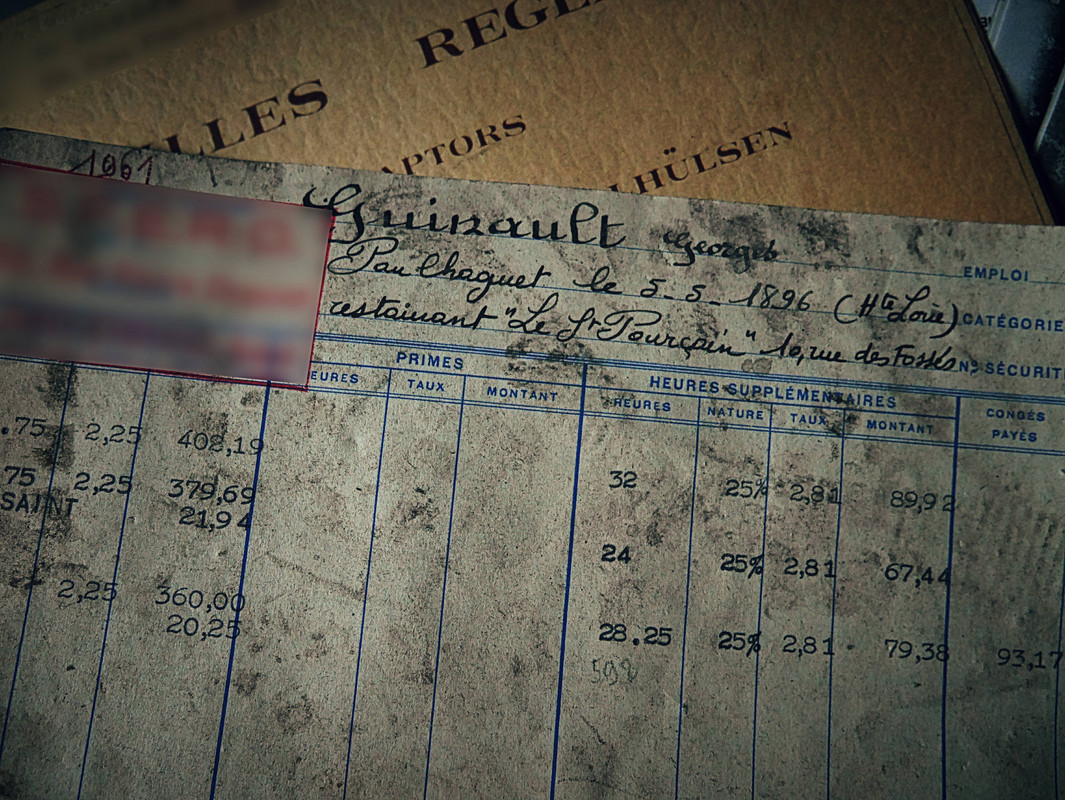 REGL
LLES
APTORS
LHÜLSEN
1961
Guinault Georges
EMPLOI
Paulhaguet le 5-5-1896 (Hte Loire)
CATÉGORIE
restaurant "Le St Pourçain" 10, rue des Fossés
No SÉCURIT
PRIMES
HEURES SUPPLÉMENTAIRES
EURES TAUX MONTANT HEURES NATURE TAUX MONTANT CONGÉS PAYÉS
.75 2,25 402,19
75 2,25 379,69 32 25% 2,81 89,92
SAINT 21,94
24 25% 2,81 67,44
2,25 360,00
20,25 28.25 25% 2,81 79,38 93,17
598